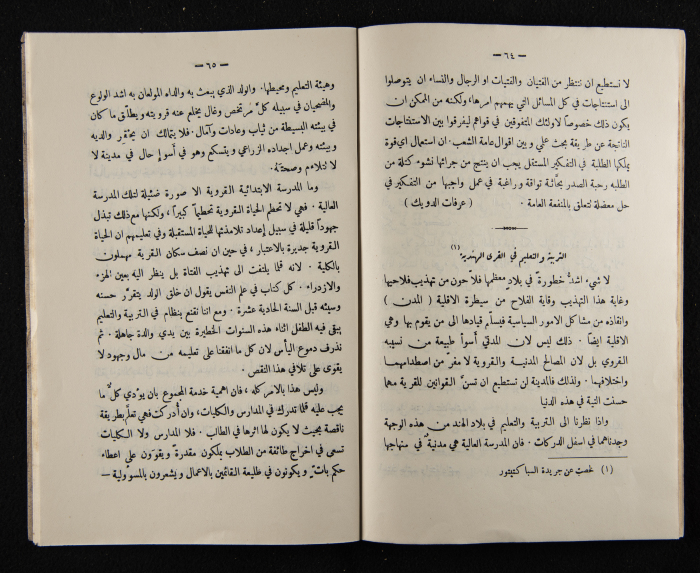 — ٦٤ —
لا نستطيع ان ننتظر من الفتيان والفتيات او الرجال والنساء ان يتوصلوا
الى استنتاجات في كل المسائل التي يهمهم امرها، ولكنه من الممكن ان
يكون ذلك خصوصاً لاولئك المتفوقين في قواهم ليفرقوا بين الاستنتاجات
الناتجة عن طريقة بحث علمي وبين اقوال عامة الشعب. ان استعمال اي قوة
يملكها الطلبة في التفكير المستقل يجب ان ينتج من جرائها نشوء كتلة من
الطلبه رحبة الصدر بحّاثة تواقة وراغبة في عمل واجبها من التفكير في
حل معضلة لتعلق بالمنفعة العامة. ( عرفات الدويك )
التربية والتعليم في القرى الهندية (١)
لا شيء اشدُّ خطورةً في بلادٍ معظمها فلاّحون من تهذيب فلاحيها
وغاية هذا التهذيب وقاية الفلاح من سيطرة الاقلية ( المدن )
وانقاذه من مشاكل الامور السياسية فيسلّم قيادها الى من يقوم بها وهي
الاقلية ايضاً. ذلك ليس لان المدني أسوأ طبيعة من نسيبه
القروي بل لان المصالح المدنية والقروية لا مفرّ من اصطدامهما
واختلافهما. ولذلك فالمدينة لن نستطيع ان تسنَّ القوانين للقرية مهما
حسنت النية في هذه الدنيا
واذا نظرنا الى التربية والتعليم في بلاد الهند من هذه الوجهة
وجدناهما في اسفل الدركات. فان المدرسة العالية هي مدنيةٌ في منهاجها
(١) لخصت عن جريدة السباكتيتور
— ٦٥ —
وهيئة التعليم ومحيطها. والولد الذي يبعث به والداه المولعان به اشد الولوع
والمضحيان في سبيله كلَّ مرتخص وغال يخلع عنه قرويته ويطلّق ما كان
في بيئته البسيطة من ثياب وعادات وآمال. فلا يتمالك ان يحتقر والديه
وبيئته وعمل اجداده الزراعي ويتسكع وهو في أسوإ حال في مدينة لا
لا تتلاءم وصحته.
وما المدرسة الابتدائية القروية الا صورة ضئيلة لتلك المدرسة
العالية. فهي لا تحطم الحياة القروية تحطيماً كبيراً، ولكنها مع ذلك تبذل
جهوداً قليلة في سبيل إعداد تلامذتها للحياة المستقبلة وفي تعليمهم ان الحياة
القروية جديرة بالاعتبار، في حين ان نصف سكان القرية مهملون
بالكلية. لانه قلما يلتفت الى تهذيب الفتاة بل ينظر اليه بعين الهزء
والازدراء. كل كتاب في علم النفس يقول ان خلق الولد يتقرّر حسنه
وسيئه قبل السنة الحادية عشرة. ومع اننا نقنع بنظام في التربية والتعليم
يبقى فيه الطفل اثناء هذه السنوات الخطيرة بين يدي والدة جاهلة. ثم
نذرف دموع اليأس لان كل ما انفقنا على تعليمه من مال وجهود لا
يقوى على تلافي هذا النقص.
وليس هذا بالامر كله، فان اهمية خدمة المجموع بان يؤدي كلٌّ ما
يجب عليه قلما تدرك في المدارس والكليات، وان أُدركت فهي تعلّم بطريقة
ناقصة بحيث لا يكون لها اثرها في الطالب. فلا المدارس ولا الكليات
تسعى في اخراج طائفة من الطلاب يملكون مقدرة ويقوَون على اعطاء
حكم باتّ ويكونون في طليعة القائمين بالاعمال ويشعرون بالمسؤولية —